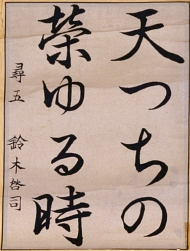 天つちの
榮ゆる時
尋五　鈴木啓司